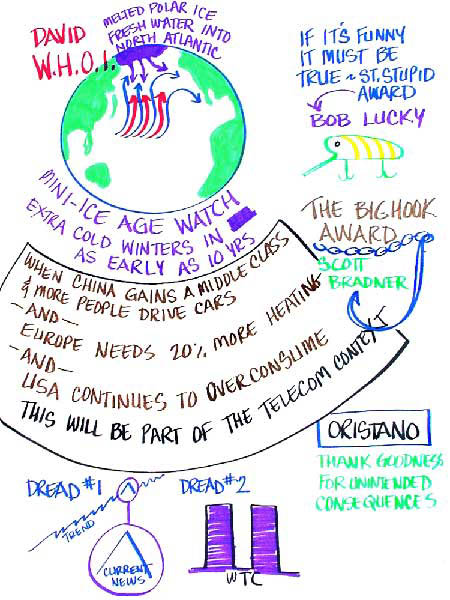 DAVID
W.H.O.I.
MELTED POLAR ICE
FRESH WATER INTO
NORTH ATLANTIC
MINI-ICE AGE WATCH
EXTRA COLD WINTERS IN
AS EARLY AS 10 YRS
WHEN CHINA GAINS A MIDDLE CLASS
& MORE PEOPLE DRIVE CARS
-AND-
EUROPE NEEDS 20% MORE HEATING
-AND-
USA CONTINUES TO OVERCONSUME
THIS WILL BE PART OF THE TELECOM CONTEXT
IF IT'S FUNNY
IT MUST BE
TRUE ~ ST. STUPID
AWARD
BOB LUCKY
THE BIG HOOK
AWARD
SCOTT
BRADNER
ORISTANO
THANK GOODNESS
FOR UNINTENDED
CONSEQUENCES
DREAD #1
TREND
CURRENT
NEWS
DREAD #2
WTC